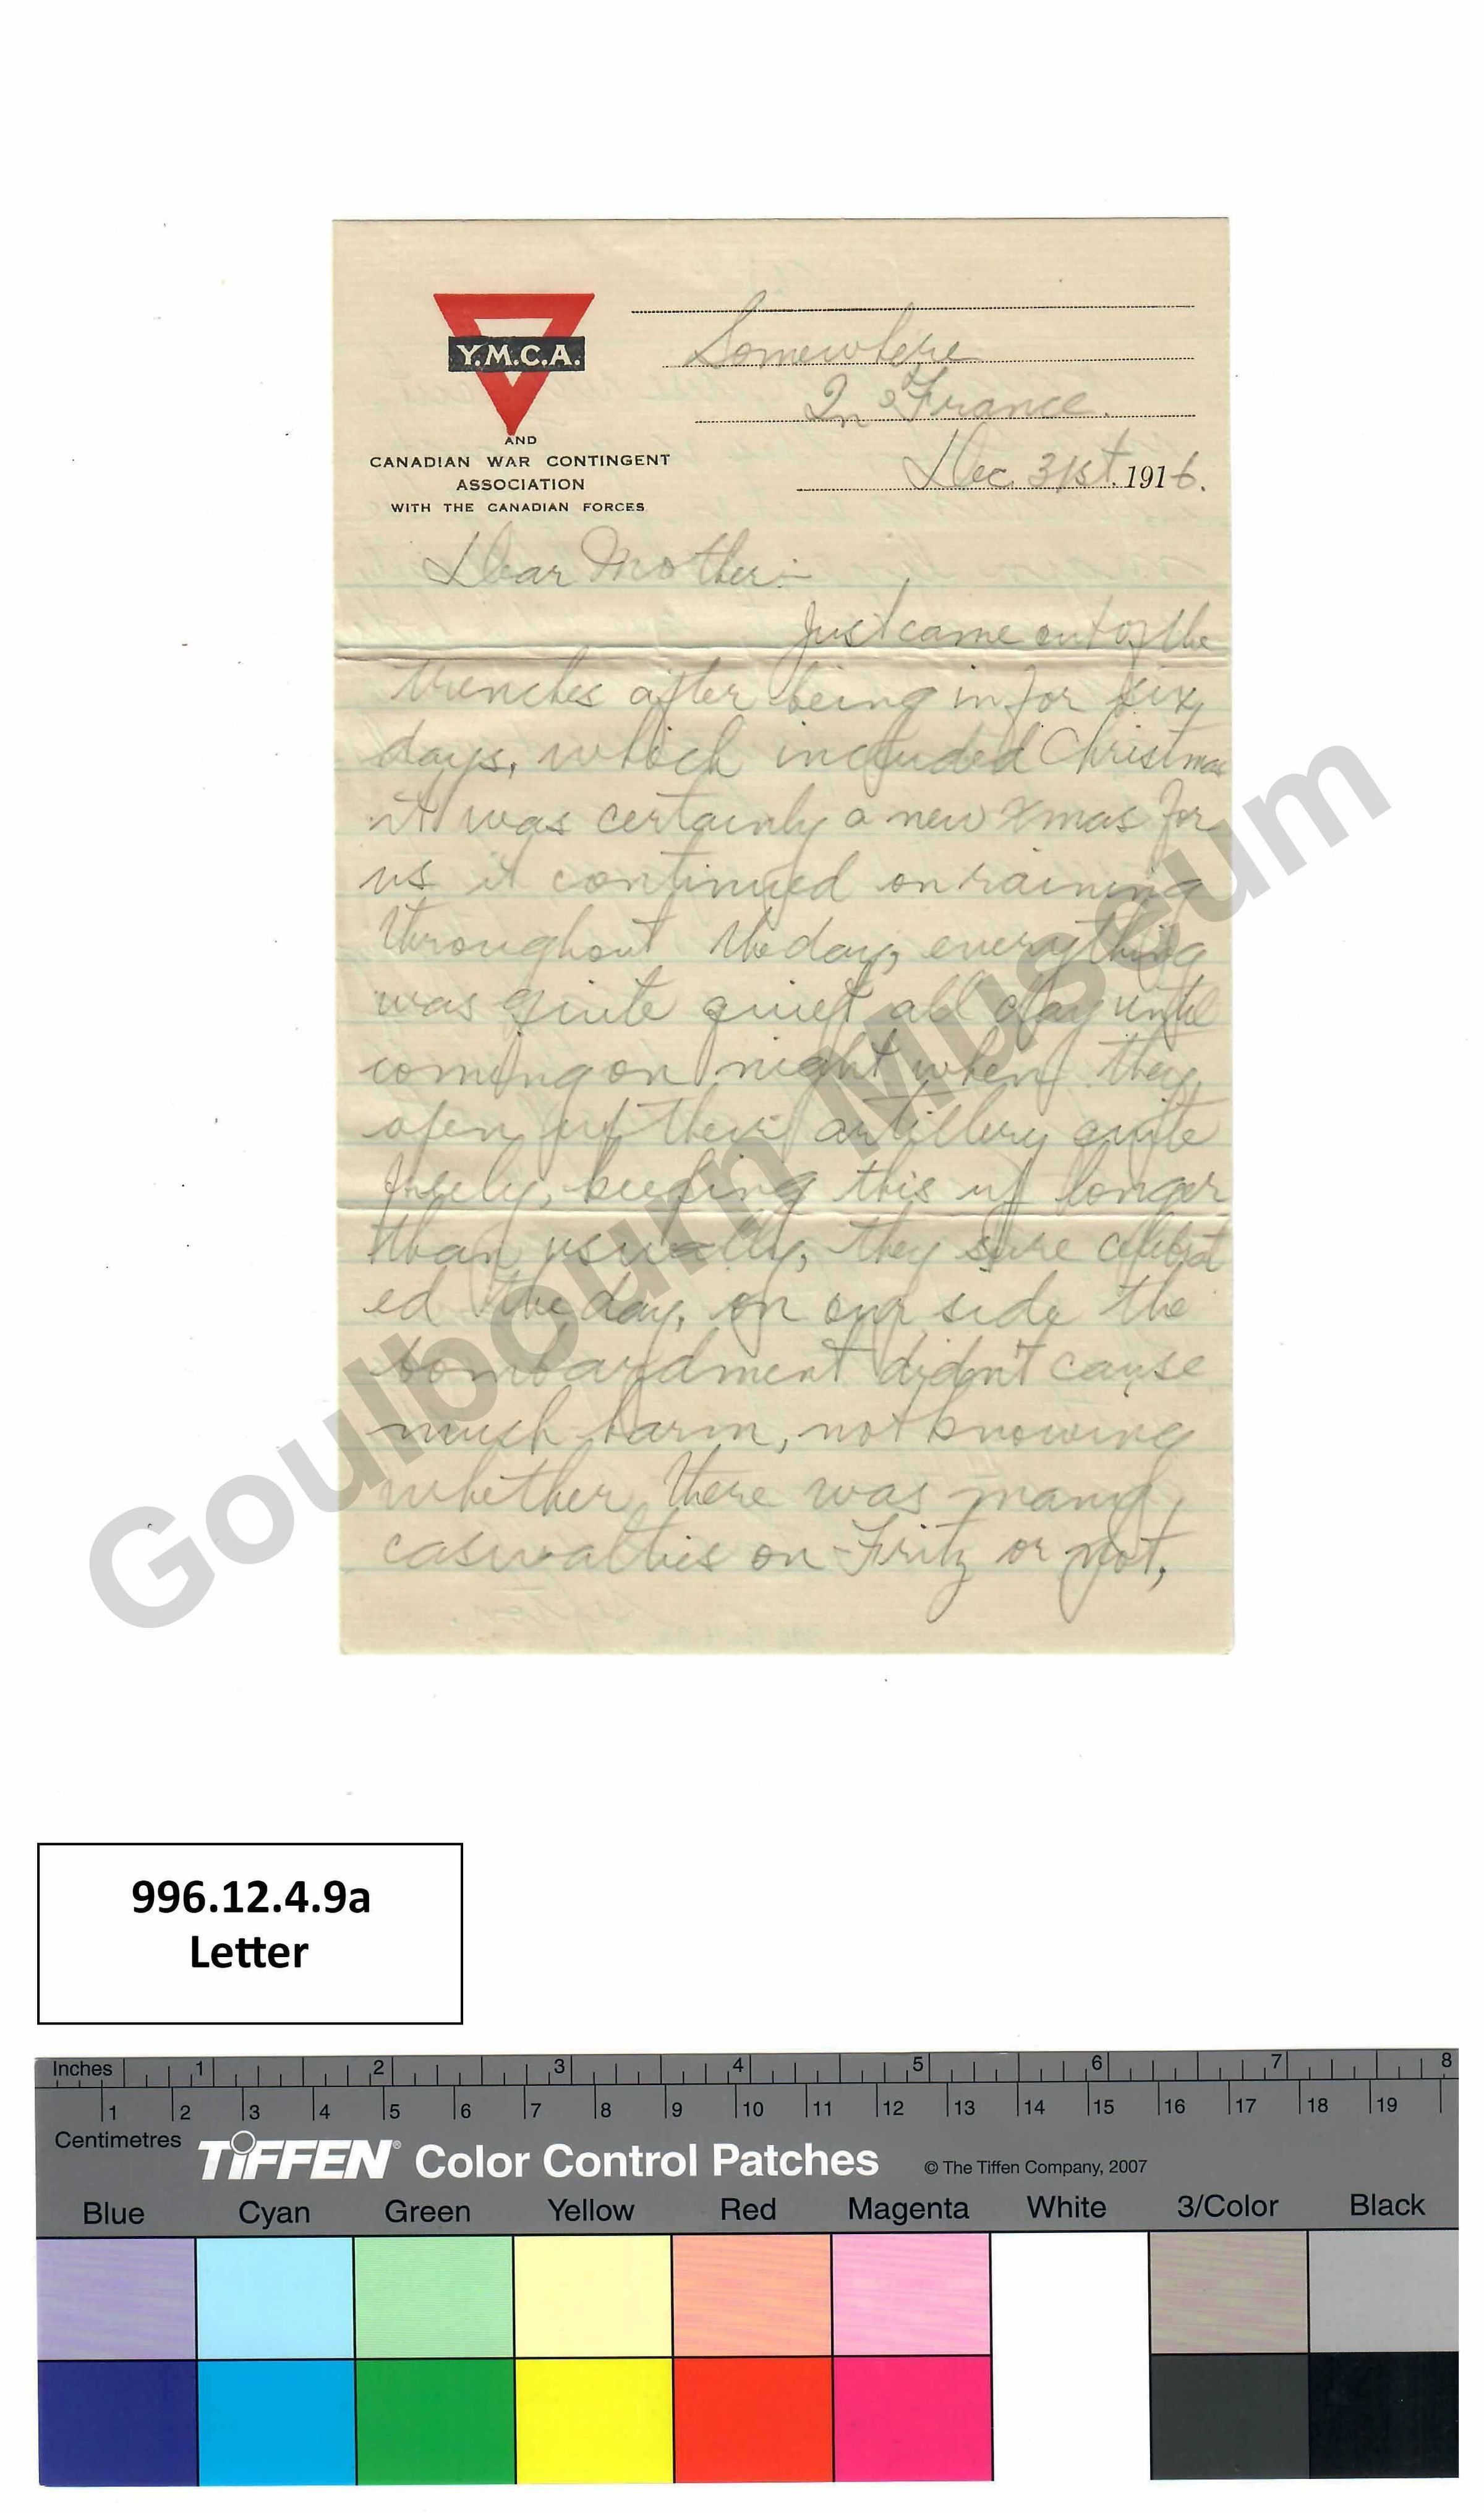 Y.M.C.A.
AND
CANADIAN WAR CONTINGENT
ASSOCIATION
WITH THE CANADIAN FORCES
Somewhere
In France.
Dec. 31st. 1916.
Dear Mother:-
Just came out of the
trenches after being in for six
days, which included Christmas
it was certainly a new Xmas for
us it continued on raining
throughout the day, everything
was quite quiet all day until
coming on night when they
open up their artillery quite
freely, keeping this up longer
than usually, they sure celebrat
ed the day, on our side the
bombardment didn't cause
much harm, not knowing
whether there was many
casualties on Fritz or not,
Goulbourn Museum
996.12.4.9a
Letter
Inches 1 2 3 4 5 6 7 8
1 2 3 4 5 6 7 8 9 10 11 12 13 14 15 16 17 18 19
Centimetres
TIFFEN® Color Control Patches © The Tiffen Company, 2007
Blue Cyan Green Yellow Red Magenta White 3/Color Black